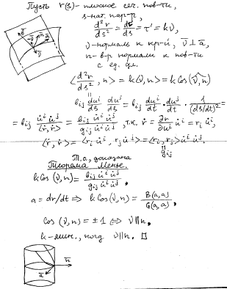 Пусть r(s) - плоское сеч. пов-ти,
s - нат. пар-р,
d²r/ds² = dτ/ds = τ' = kν,
ν - нормаль к кр-й, ν ⊥ a,
n - в-р нормали к пов-ти
с ед.
⟨d²r/ds², n⟩ = k⟨ν, n⟩ = k cos(ν,n)
= b_ij du^i/ds du^j/ds = b_ij du^i/dt · du^j/dt · 1/(ds/dt)² =
= b_ij u̇^i u̇^j / ⟨ṙ, ṙ⟩ = b_ij u̇^i u̇^j / g_ij u̇^i u̇^j, т.к. ṙ = ∂r/∂u^i u̇^i = r_i u̇^i,
⟨ṙ, ṙ⟩ = ⟨r_i u̇^i, r_j u̇^j⟩ = ⟨r_i, r_j⟩ u̇^i u̇^j.
g_ij
Т.о. доказана
Теорема Менье.
k cos(ν, n) = b_ij u̇^i u̇^j / g_ij u̇^i u̇^j.
a = dr/dt ⇒ k cos(ν, n) = B(a, a) / G(a, a).
cos(ν, n) = ±1 ⇔ ν ∥ n.
k - мин., когда ν ∥ n. □
n